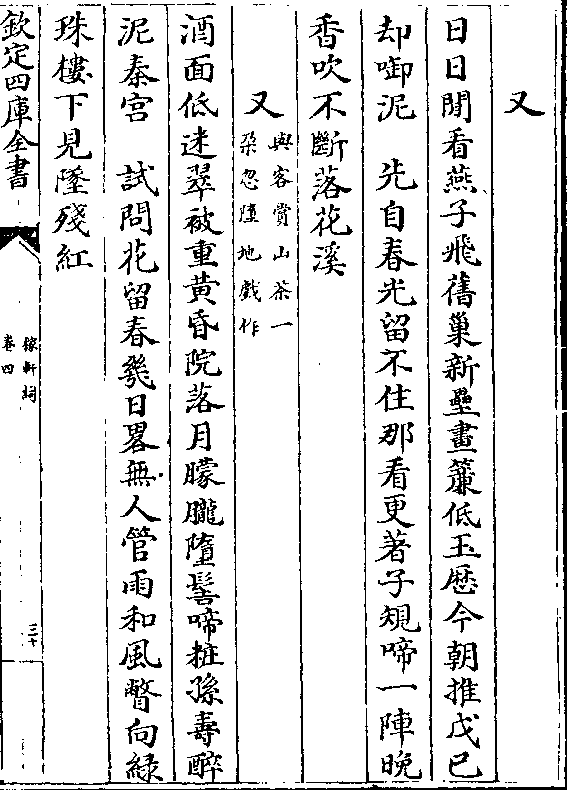 又
日日閒看燕子飛舊巢新壘畫簾低玉歴今朝推戊已
却啣泥　先自春光留不住那看更著子規啼一陣晚
香吹不斷落花溪
又
與客賞山茶一
朶忽墮地戲作
酒面低迷翠被重黃昏院落月朦朧墮髻啼粧孫壽醉
泥秦宮　試問花留春幾日畧無人管雨和風瞥向緑
珠樓下見墜殘紅
欽定四庫全書
稼軒詞
卷四
三十